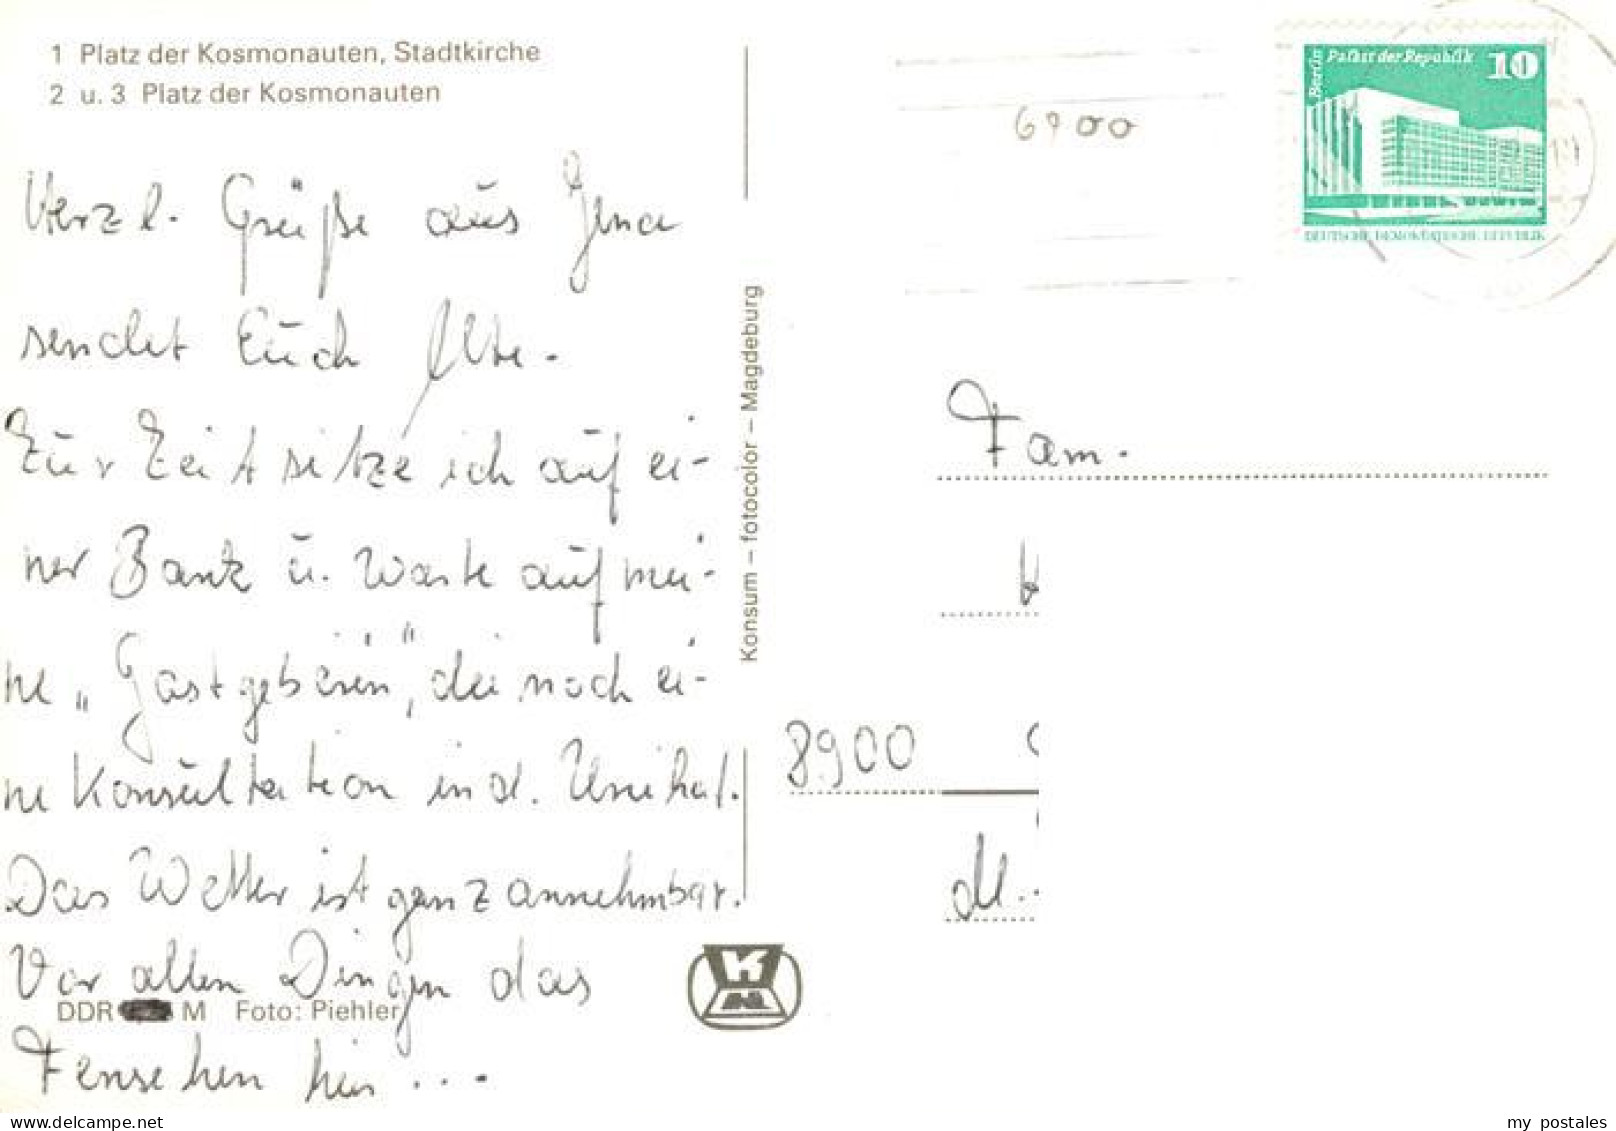 1 Platz der Kosmonauten, Stadtkirche
2 u. 3 Platz der Kosmonauten
Herzl. Grüße aus Jena
sendet Euch Ute.
Zur Zeit sitze ich auf ei-
ner Bank u. warte auf mei-
ne „Gastgeberin", die noch ei-
ne Konsultation in d. Uni hat.
Das Wetter ist ganz annehmbar.
Vor allen Dingen das
DDR M Foto: Piehler
Fernsehen hier ...
Konsum – fotocolor – Magdeburg
6900
Berlin
Palast der Republik 10
DEUTSCHE DEMOKRATISCHE REPUBLIK
Fam.
8900
my postales
www.delcampe.net